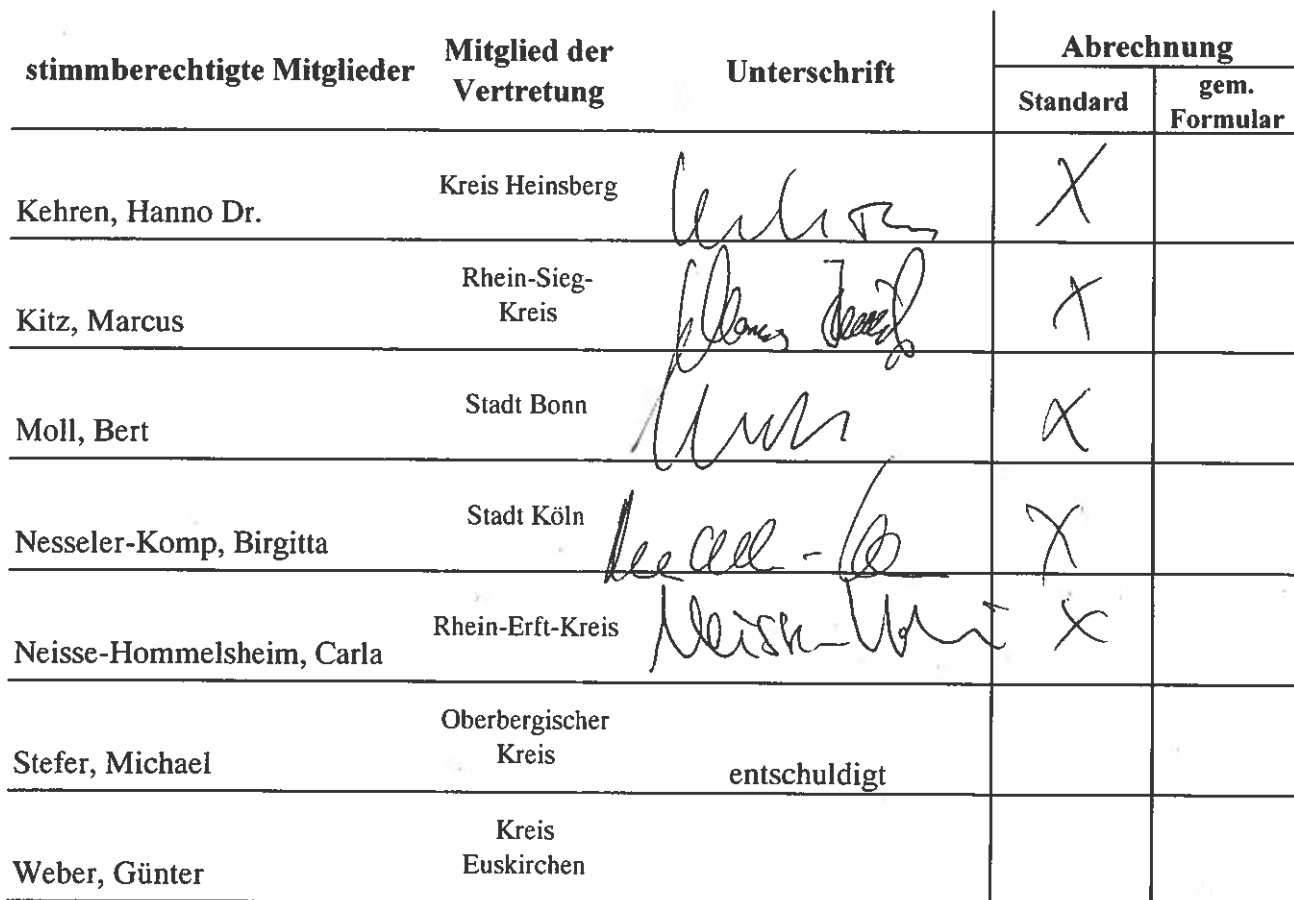 stimmberechtigte Mitglieder Mitglied der Vertretung Unterschrift Abrechnung
Standard gem. Formular
Kehren, Hanno Dr. Kreis Heinsberg X
Kitz, Marcus Rhein-Sieg-Kreis X
Moll, Bert Stadt Bonn X
Nesseler-Komp, Birgitta Stadt Köln X
Neisse-Hommelsheim, Carla Rhein-Erft-Kreis X
Stefer, Michael Oberbergischer Kreis entschuldigt
Weber, Günter Kreis Euskirchen